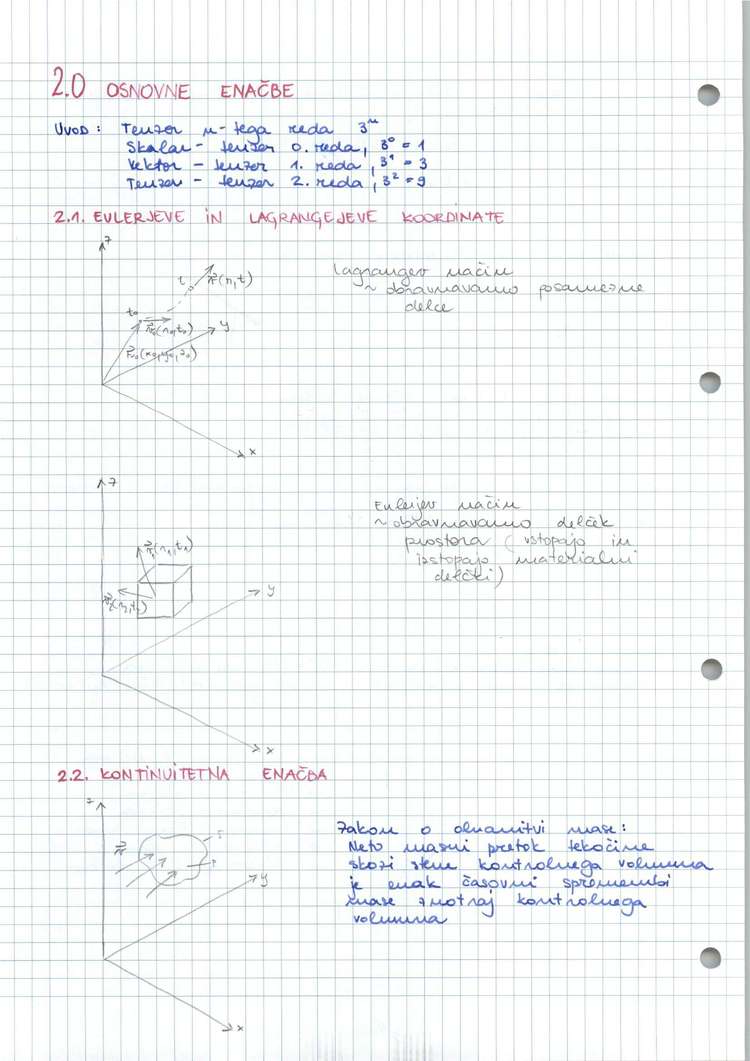 2.0 OSNOVNE ENAČBE
UVOD: Tenzor n-tega reda 3ⁿ
Skalar - tenzor 0. reda, 3⁰ = 1
Vektor - tenzor 1. reda, 3¹ = 3
Tenzor - tenzor 2. reda, 3² = 9
2.1. EULERJEVE IN LAGRANGEJEVE KOORDINATE
z
t
(r,t)
Lagrangev način
~ obravnavamo posamezne
delce
t₀
y
(r₀,t₀)
r₀(x₀,y₀,z₀)
x
z
Eulerjev način
~ obravnavamo delček
prostora (vstopajo in
izstopajo materialni
delčki)
(r₁,t₁)
y
x
2.2. KONTINUITETNA ENAČBA
z
Zakon o ohranitvi mase:
Neto masni pretok tekočine
skozi stene kontrolnega volumna
je enak časovni spremembi
mase znotraj kontrolnega
volumna
y
x